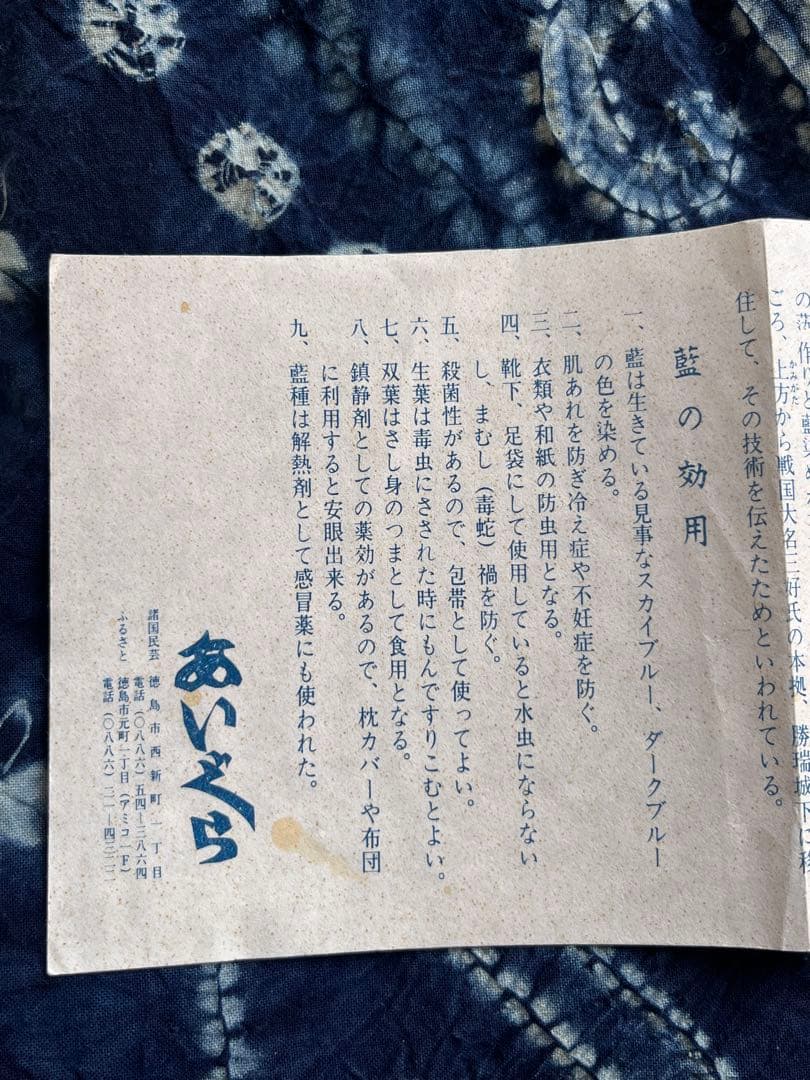 ごろ、上方から戦国大名三好氏の本拠、勝瑞城下に移
かみがた
住して、その技術を伝えたためといわれている。
藍の効用
一、藍は生きている見事なスカイブルー、ダークブルー
の色を染める。
二、肌あれを防ぎ冷え症や不妊症を防ぐ。
三、衣類や和紙の防虫用となる。
四、靴下、足袋にして使用していると水虫にならない
し、まむし（毒蛇）禍を防ぐ。
五、殺菌性があるので、包帯として使ってよい。
六、生葉は毒虫にさされた時にもんですりこむとよい。
七、双葉はさし身のつまとして食用となる。
八、鎮静剤としての薬効があるので、枕カバーや布団
に利用すると安眼出来る。
九、藍種は解熱剤として感冒薬にも使われた。
あいぐら
諸国民芸 徳島市西新町一丁目
電話（〇八八六）五四―三八六四
ふるさと 徳島市元町一丁目（アミコ一F）
電話（〇八八六）二一―四三二二